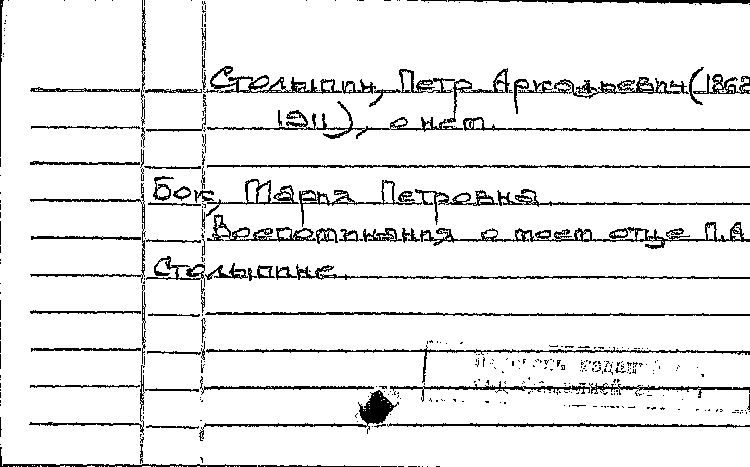 Столыпин, Петр Аркадьевич (1862
1911), о нем.
Бок, Мария Петровна.
Воспоминания о моем отце П.А
Столыпине.